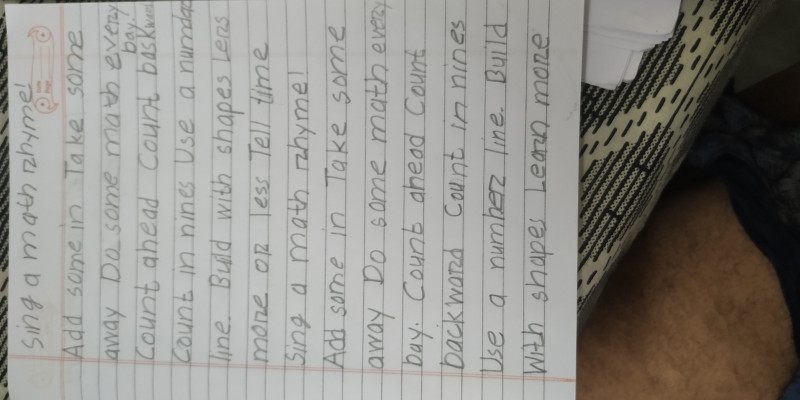 sing a math rhyme!
Add some in Take some
away Do some math every
bay!
Count ahead Count backward
Count in nines Use a number
line. Build with shapes Lers
more or less Tell time
Sing a math rhyme!
Add some in Take some
away Do some math every
bay. Count ahead Count
backward Count in nines
Use a number line. Build
with shapes Learn more